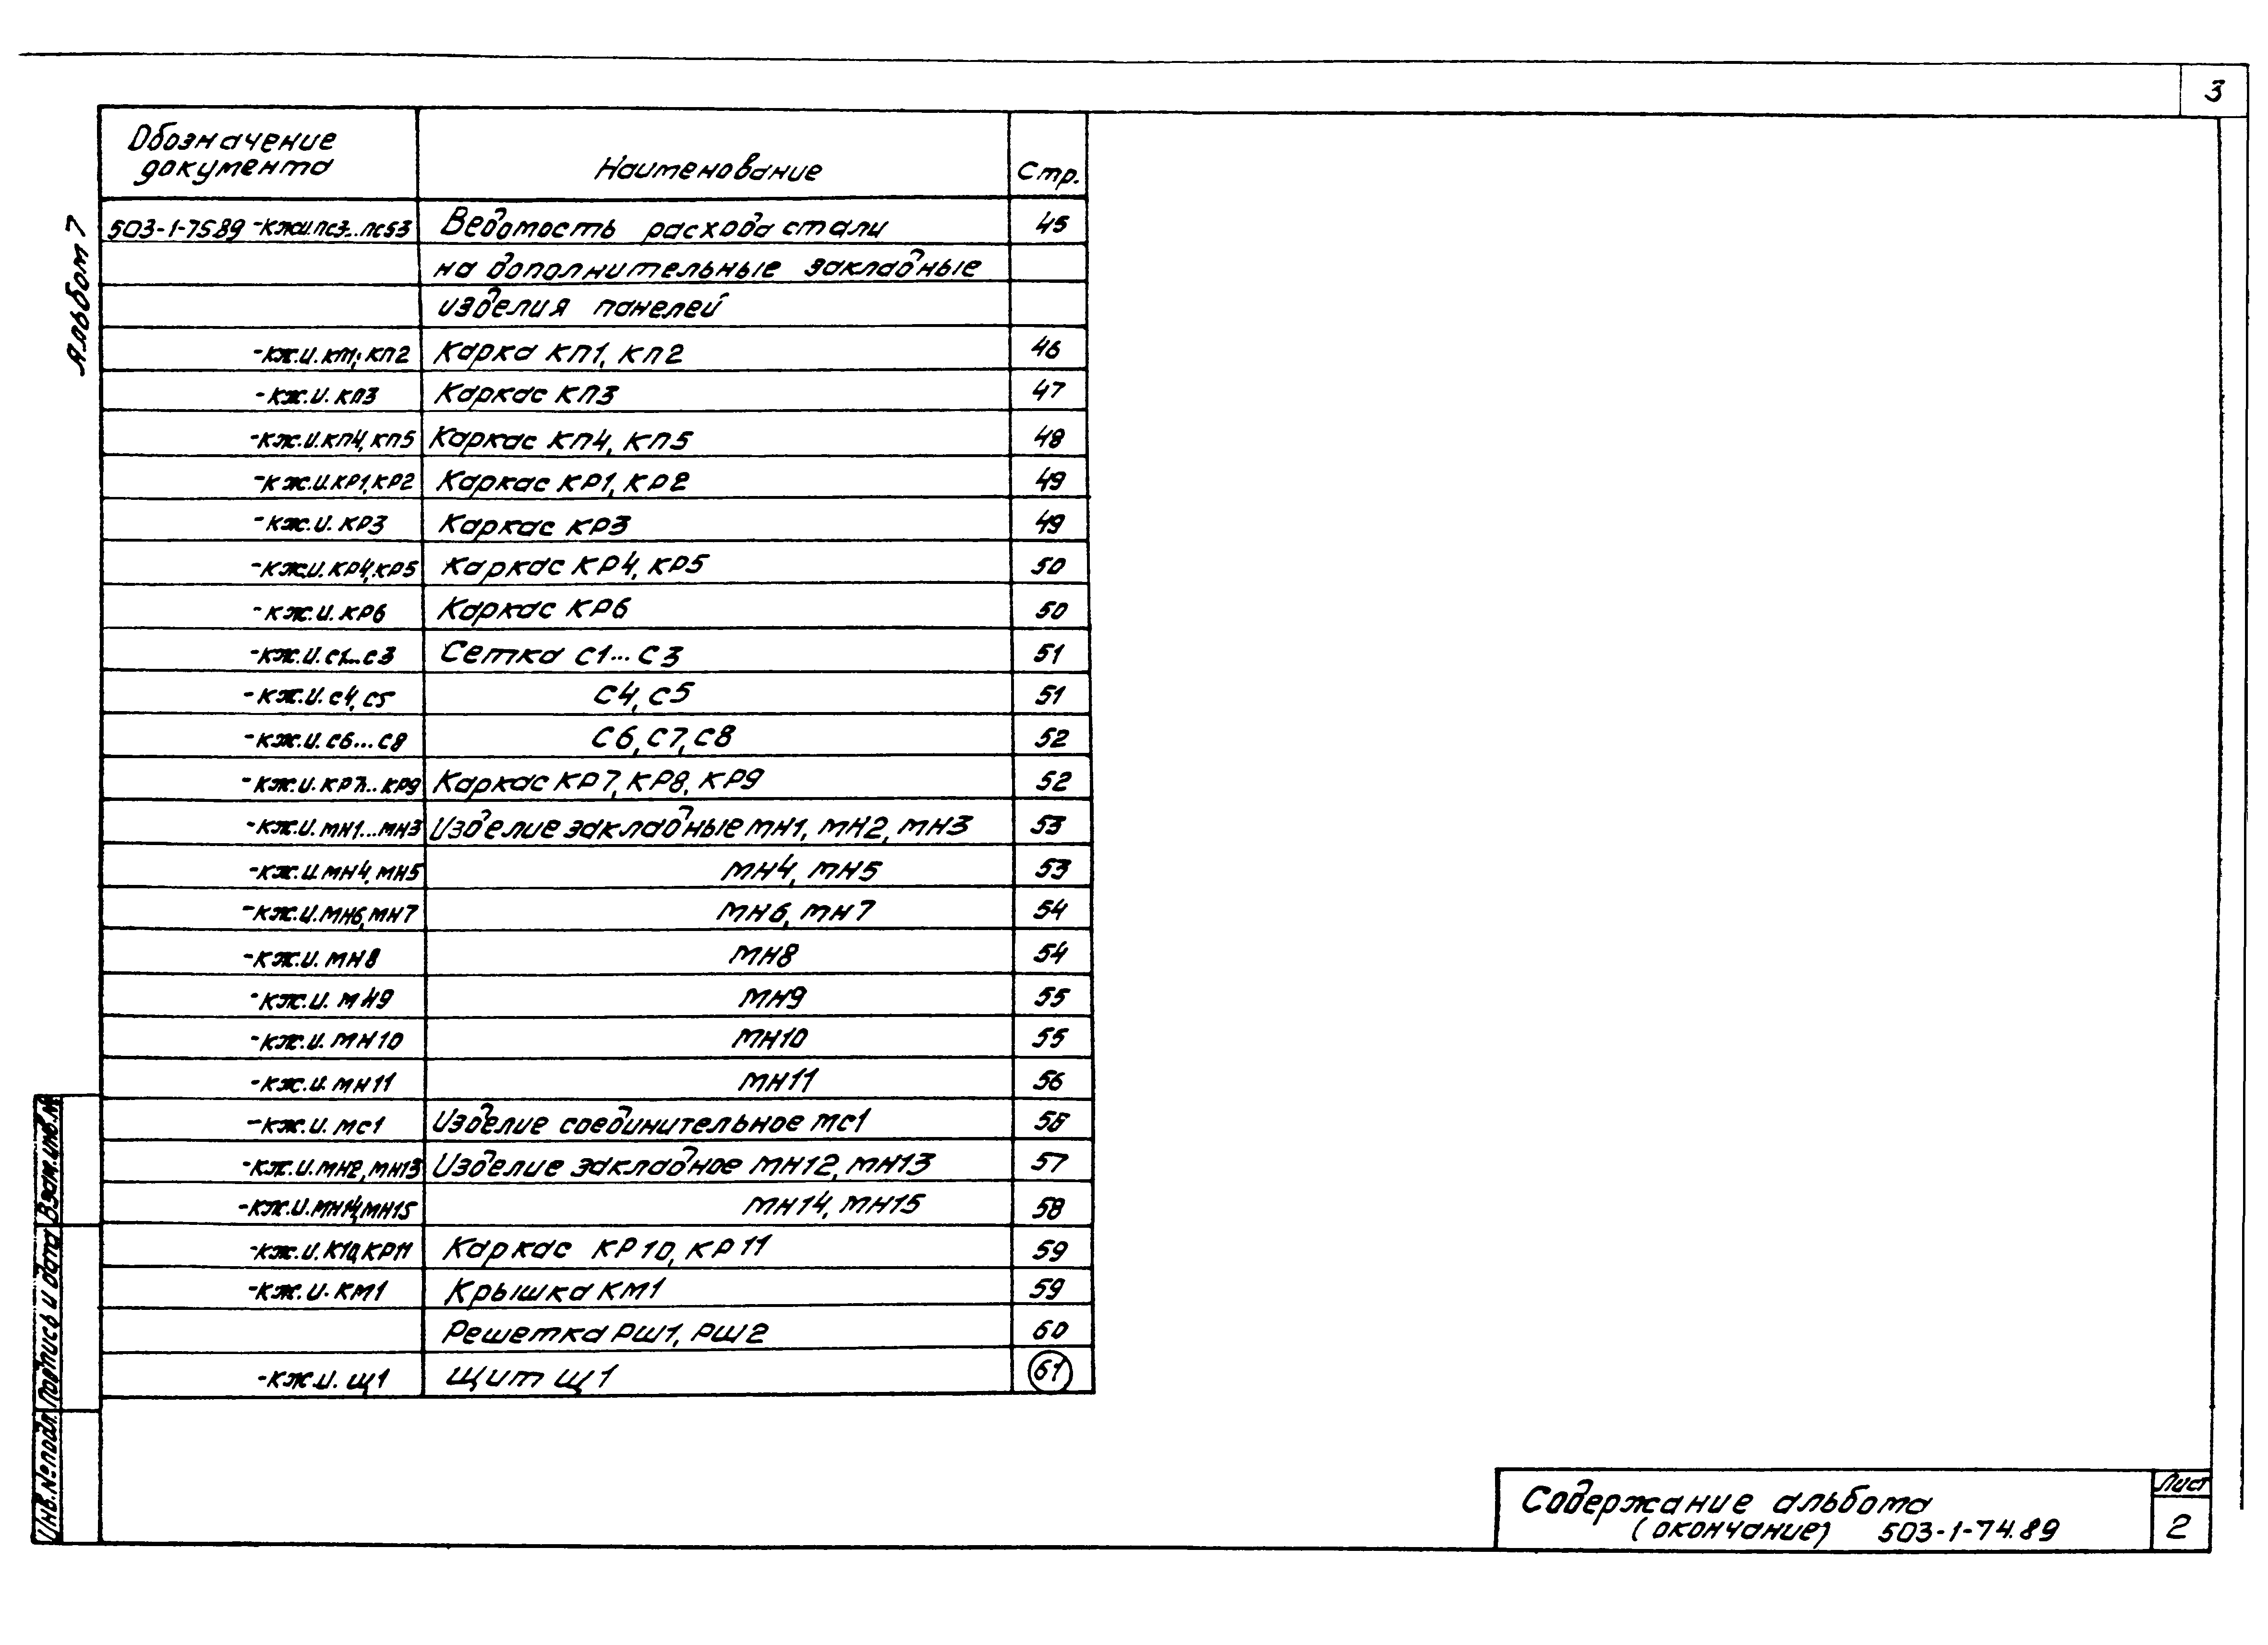 3
Альбом 7
Обозначение документа Наименование Стр.
503-1-75.89 -кжи.пс3...пс53 Ведомость расхода стали 45
на дополнительные закладные
изделия панелей
-кж.и.кп1, кп2 Карка кп1, кп2 46
-кж.и. кп3 Каркас кп3 47
-кж.и.кп4, кп5 Каркас кп4, кп5 48
-кж.и.кр1, кр2 Каркас кр1, кр2 49
-кж.и. кр3 Каркас кр3 49
-кж.и. кр4, кр5 Каркас кр4, кр5 50
-кж.и. кр6 Каркас кр6 50
-кж.и. с1...с3 Сетка с1...с3 51
-кж.и. с4, с5 с4, с5 51
-кж.и. с6...с8 с6, с7, с8 52
-кж.и. кр7...кр9 Каркас кр7, кр8, кр9 52
-кж.и. мн1...мн3 Изделие закладные мн1, мн2, мн3 53
-кж.и. мн4, мн5 мн4, мн5 53
-кж.и. мн6, мн7 мн6, мн7 54
-кж.и. мн8 мн8 54
-кж.и. мн9 мн9 55
-кж.и. мн10 мн10 55
-кж.и. мн11 мн11 56
-кж.и. мс1 Изделие соединительное мс1 56
-кж.и. мн2, мн13 Изделие закладное мн12, мн13 57
-кж.и. мн14, мн15 мн14, мн15 58
-кж.и. К10, КР11 Каркас кр10, кр11 59
-кж.и. км1 Крышка км1 59
Решетка рш1, рш2 60
-кж.и. щ1 Щит щ1 61
Взам.инв.№
Подпись и дата
Инв.№ подл.
Содержание альбома Лист
(окончание) 503-1-74.89 2